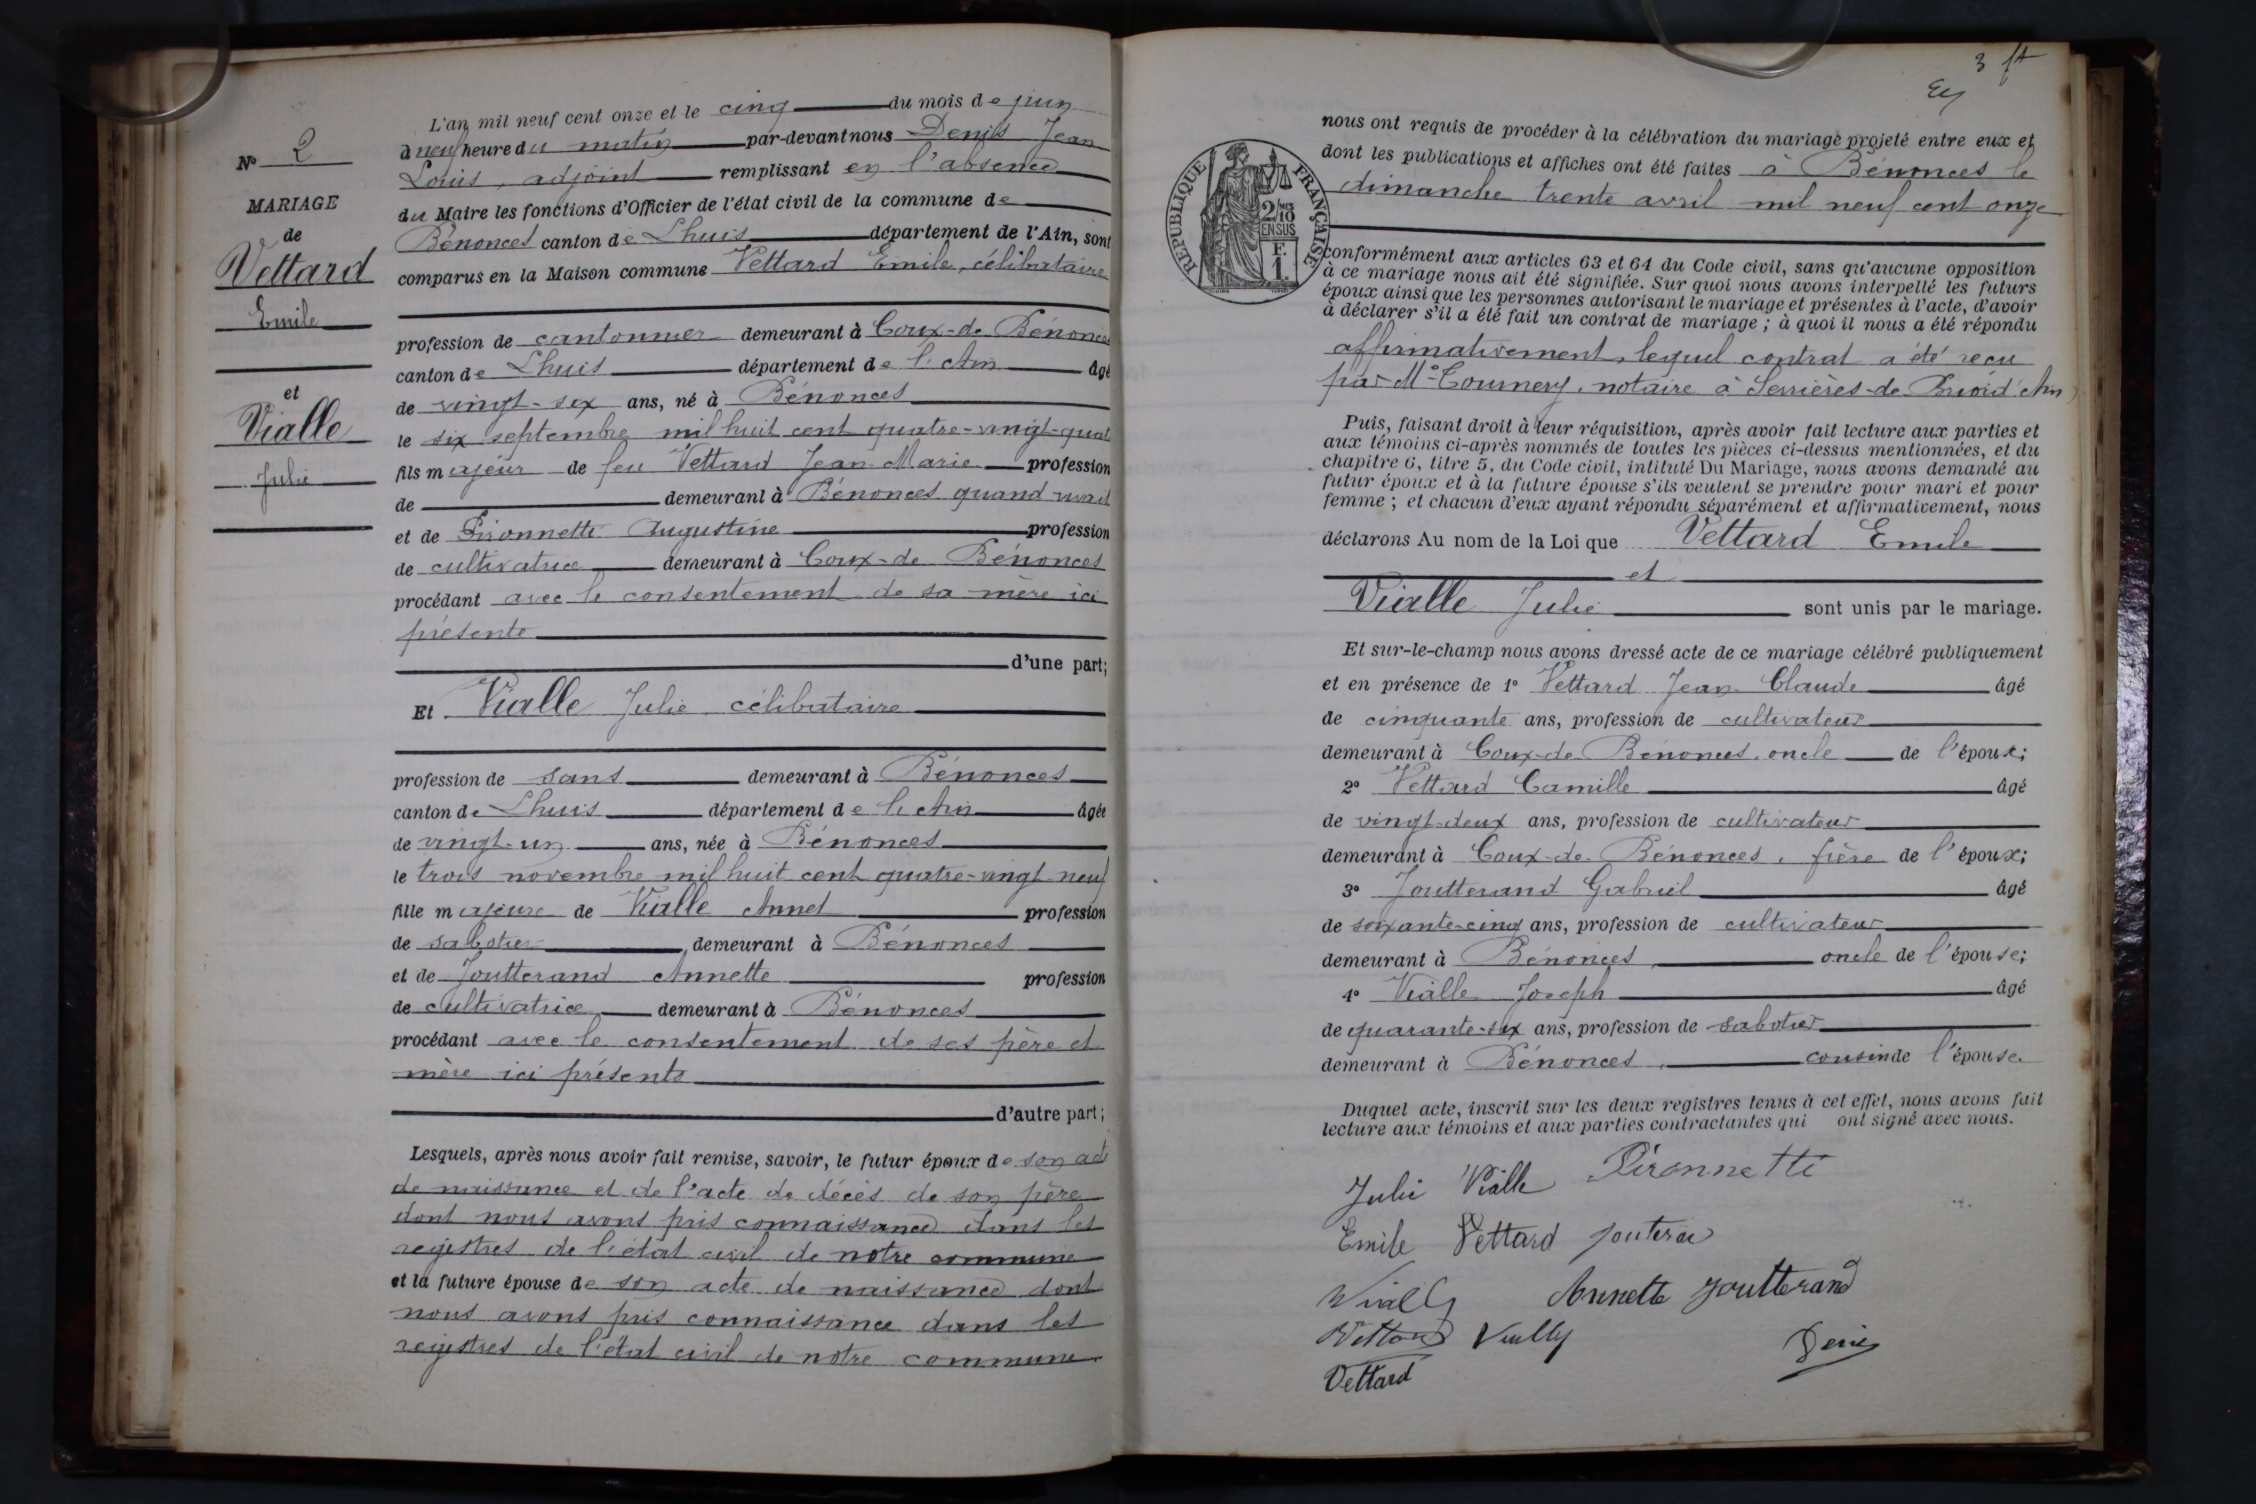 N° 2
MARIAGE
de
Vettard
Emile
et
Vialle
Julie
L'an mil neuf cent onze et le cinq du mois de juin
à neuf heure du matin par-devant nous Denis Jean
Louis, adjoint remplissant en l'absence
du Maire les fonctions d'Officier de l'état civil de la commune de
Bénonces canton de Lhuis département de l'Ain, sont
comparus en la Maison commune Vettard Emile, célibataire
profession de cantonnier demeurant à Coux-de Bénonces
canton de Lhuis département de l'Ain âgé
de vingt-six ans, né à Bénonces
le six septembre mil huit cent quatre-vingt-quat
fils majeur de feu Vettard Jean-Marie profession
de demeurant à Bénonces quand vivait
et de Pironnetti Augustine profession
de cultivatrice demeurant à Coux-de Bénonces
procédant avec le consentement de sa mère ici
présente
d'une part;
Et Vialle Julie célibataire
profession de sans demeurant à Bénonces
canton de Lhuis département de l'Ain âgée
de vingt-un ans, née à Bénonces
le trois novembre mil huit cent quatre-vingt-neuf
fille majeure de Vialle Annet profession
de sabotier demeurant à Bénonces
et de Joutterand Annette profession
de cultivatrice demeurant à Bénonces
procédant avec le consentement de ses père et
mère ici présents
d'autre part;
Lesquels, après nous avoir fait remise, savoir, le futur époux de son acte
de naissance et de l'acte de décès de son père
dont nous avons pris connaissance dans les
registres de l'état civil de notre commune
et la future épouse de son acte de naissance dont
nous avons pris connaissance dans les
registres de l'état civil de notre commune
3 ft
RÉPUBLIQUE FRANÇAISE
2/10
EN SUS
F.
1.
nous ont requis de procéder à la célébration du mariage projeté entre eux et
dont les publications et affiches ont été faites à Bénonces le
dimanche trente avril mil neuf cent onze
conformément aux articles 63 et 64 du Code civil, sans qu'aucune opposition
à ce mariage nous ait été signifiée. Sur quoi nous avons interpellé les futurs
époux ainsi que les personnes autorisant le mariage et présentes à l'acte, d'avoir
à déclarer s'il a été fait un contrat de mariage; à quoi il nous a été répondu
affirmativement, lequel contrat a été reçu
par Me Cournery, notaire à Serrières-de Briord Ain)
Puis, faisant droit à leur réquisition, après avoir fait lecture aux parties et
aux témoins ci-après nommés de toutes les pièces ci-dessus mentionnées, et du
chapitre 6, titre 5, du Code civil, intitulé Du Mariage, nous avons demandé au
futur époux et à la future épouse s'ils veulent se prendre pour mari et pour
femme; et chacun d'eux ayant répondu séparément et affirmativement, nous
déclarons Au nom de la Loi que Vettard Emile
et
Vialle Julie sont unis par le mariage.
Et sur-le-champ nous avons dressé acte de ce mariage célébré publiquement
et en présence de 1° Vettard Jean Claude âgé
de cinquante ans, profession de cultivateur
demeurant à Coux-de Bénonces, oncle de l'époux;
2° Vettard Camille âgé
de vingt-deux ans, profession de cultivateur
demeurant à Coux-de-Bénonces, frère de l'époux;
3° Joutterand Gabriel âgé
de soixante-cinq ans, profession de cultivateur
demeurant à Bénonces, oncle de l'épouse;
4° Vialle Joseph âgé
de quarante-six ans, profession de sabotier
demeurant à Bénonces, cousin de l'épouse.
Duquel acte, inscrit sur les deux registres tenus à cet effet, nous avons fait
lecture aux témoins et aux parties contractantes qui ont signé avec nous.
Julie Vialle Pironnetti
Emile Vettard
Annette Joutterand
Denis
Vettard